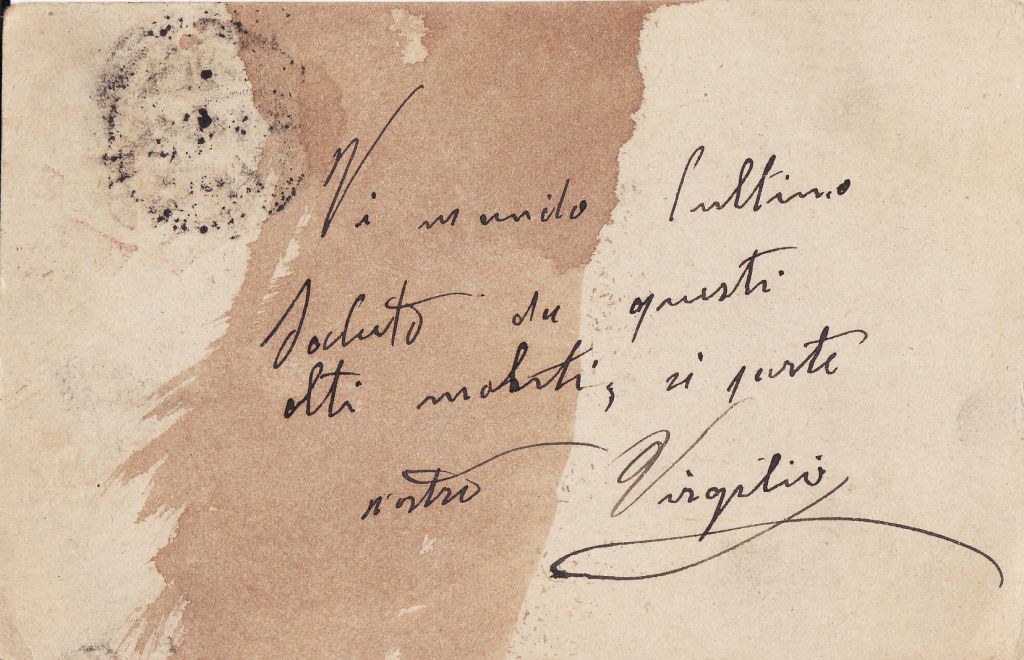 Vi mando l'ultimo
saluto da questi
alti monti, si parte
vostro Virgilio